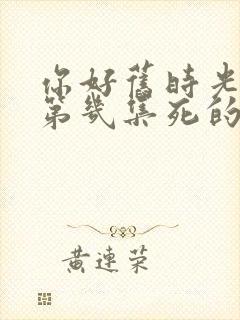 你好舊時光
第幾集死的
黃連榮